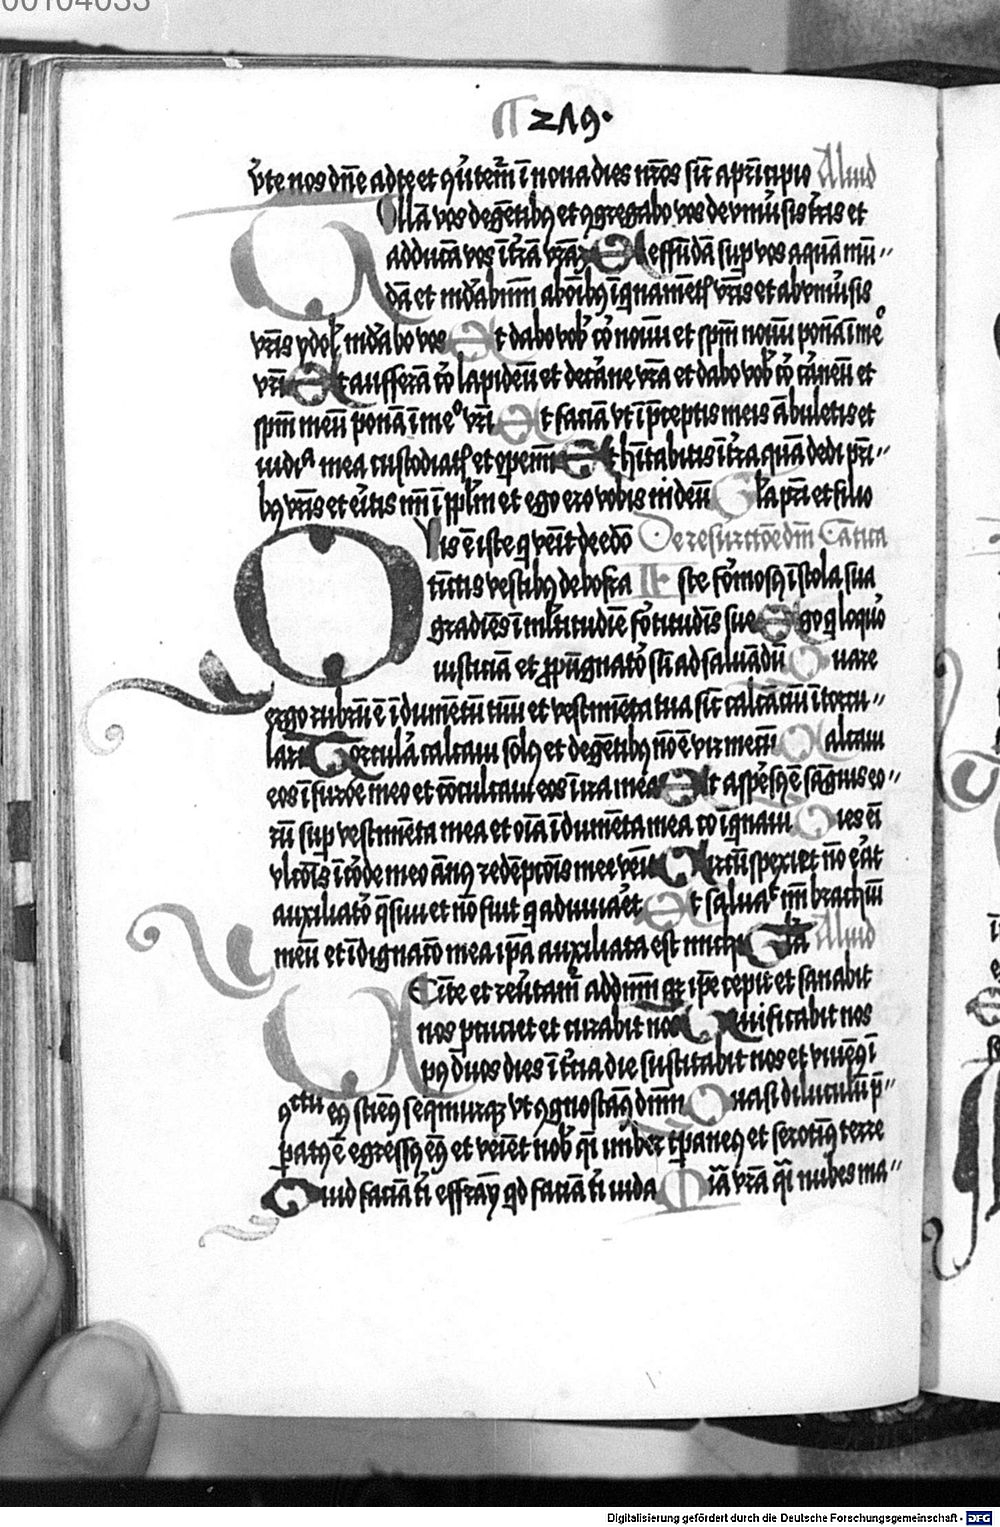 00104033
219.
v̓te nos dn̄e ad te et ꝯv̓temr̄ ī noua dies nr̄os sic̄ a pͥncipio Aliud
Tollā vos de gētibꝰ et ꝯgregabo vos de vniu̓sis tr̄is et
adducā vos ī tr̄ā vrāꝫ Et effūdā sup vos aquā mū〃
dā et mūdabimī ab oībꝰ īqnamētꝭ vrīs et ab vniu̓sis
vrīs ydolꝭ mūdabo vos Et dabo vob̓ co̓ nouū et spm̄ nouū ponā ī meͦ
vrī Et aufferā co̓ lapideū et de carne vrā et dabo vob̓ co̓ carneū et
spm̄ meū ponā ī meͦ vrī Et faciā vt ī p̄ceptis meis ābuletis et
iudiͣ mea custodiatꝭ et opemī Et hītabitis ī tr̄a quā dedi pr̄i〃
bꝰ vrīs et eitis m̄ ī pplm̄ et ego ero vobis in deū Gl̓a pr̄i et filio
Quis ē iste q venīt de edō De resurctōe dm̄ Cātica
tīctis vestibꝰ de bosra Iste fo̓mosꝰ ī stola sua
gradiēs ī ml̓titudīe fo̓titudīs sue Ego q loquo̓
iusticiā et ꝓpugnato̓ sū ad saluādū Quare
ergo rubrū ē īdumētū tuū et vestimēta tua sic̄ calcaciū ī torcu〃
lari Torcula̓ calcaui solꝰ et de gētibꝰ nō ē vir mecū Calcaui
eos ī furoe meo et cōculcaui eos ī ira mea Et aspesꝰ ē sāguis eo〃
rū sup vestimēta mea et oīa īdumēta mea co īqnaui Dies eī
vltōis ī co̓de meo ānꝰ redēptōis mee venīt Circūspexi et nō eat
auxiliato̓ q̄siui et nō fuit q adiuua̓et Et saluaͭ m̄ brachiū
meū et īdignatō mea ip̄a auxiliata est michi Gl̓a Aliud
Venīte et reu̓tamr̄ ad dm̄m qꝛ ip̄e cepit et sanabit
nos pcuciet et curabit nos Uiuificabit nos
pꝰ duos dies ī tc̓ia die suscitabit nos et viuemꝰ ī
ꝯctu eiꝰ sciemꝰ seqmurqꝫ vt ꝯgnoscamꝰ dm̄m Quasi diluculū p̄〃
patꝰ ē egressꝰ eiꝰ et veniet nob̓ qi̓ imber tpaneꝰ et serotinꝰ terre
Quid faciā ti̓ effraym qd faciā ti̓ iuda Mīa vrā qi̓ nubes ma〃
Digitalisierung gefördert durch die Deutsche Forschungsgemeinschaft - DFG